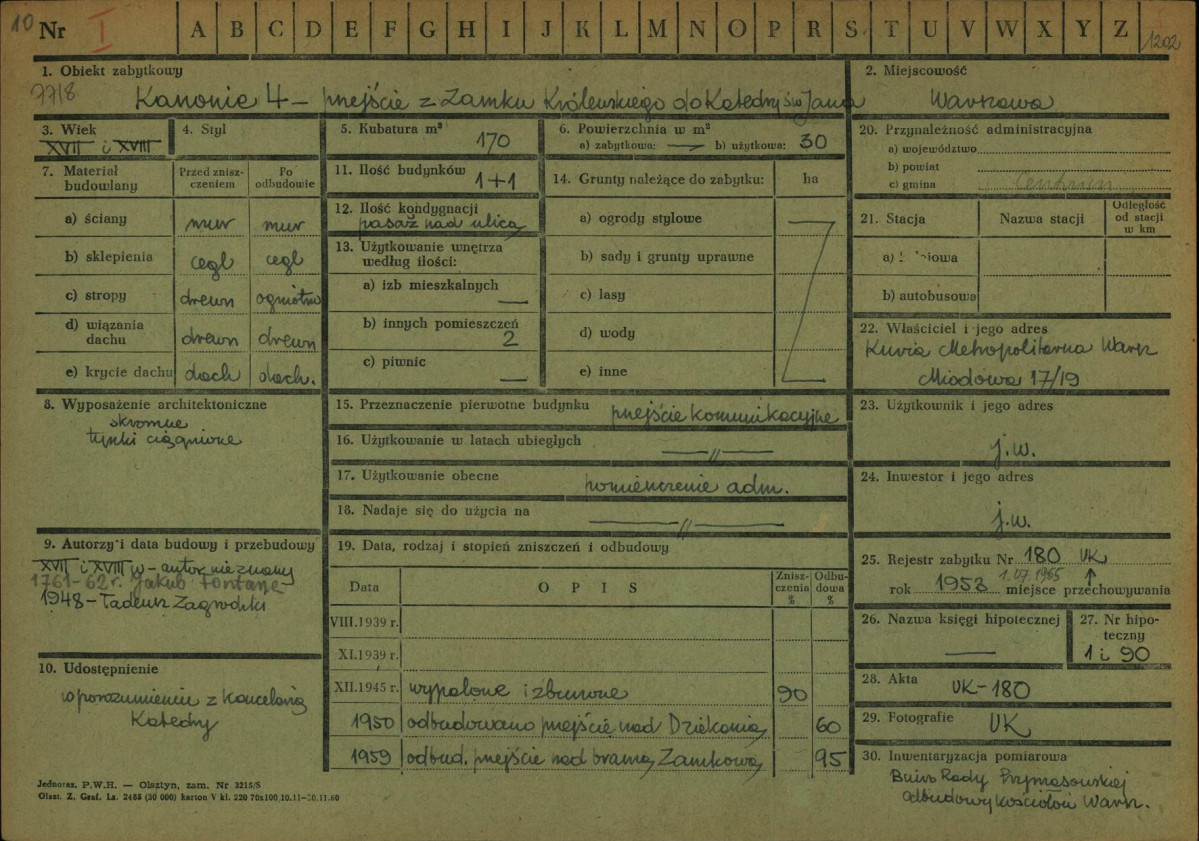 10 Nr I A B C D E F G H I J K L M N O P R S T U V W X Y Z 1202
1. Obiekt zabytkowy
7718
Kanonie 4 – przejście z Zamku Królewskiego do Katedry św Jana
2. Miejscowość
Warszawa
3. Wiek
XVII i XVIII
4. Styl
5. Kubatura m³
170
6. Powierzchnia w m²
a) zabytkowa: — b) użytkowa: 30
20. Przynależność administracyjna
a) województwo
b) powiat
c) gmina Centrum
7. Materiał budowlany
Przed zniszczeniem
Po odbudowie
a) ściany mur mur
b) sklepienia cegl cegl
c) stropy drewn ogniotrw
d) wiązania dachu drewn drewn
e) krycie dachu dach dach.
11. Ilość budynków
1+1
12. Ilość kondygnacji
pasaż nad ulicą
13. Użytkowanie wnętrza według ilości:
a) izb mieszkalnych —
b) innych pomieszczeń 2
c) piwnic —
14. Grunty należące do zabytku: ha
a) ogrody stylowe
b) sady i grunty uprawne
c) lasy
d) wody
e) inne
21. Stacja Nazwa stacji Odległość od stacji w km
b) autobusowa
22. Właściciel i jego adres
Kuria Metropolitarna Warsz
Miodowa 17/19
8. Wyposażenie architektoniczne
skromne
tynki ciągnione
15. Przeznaczenie pierwotne budynku przejście komunikacyjne
16. Użytkowanie w latach ubiegłych —//—
17. Użytkowanie obecne pomieszczenie adm.
18. Nadaje się do użycia na —//—
23. Użytkownik i jego adres
j.w.
24. Inwestor i jego adres
j.w.
9. Autorzy i data budowy i przebudowy
XVII i XVIII w – autor nieznany
1761-62 r. Jakub Fontana
1948 – Tadeusz Zagrodzki
19. Data, rodzaj i stopień zniszczeń i odbudowy
Data OPIS Zniszczenia % Odbudowa %
VIII.1939 r.
XI.1939 r.
XII.1945 r. wypalone i zburzone 90
1950 odbudowano przejście nad Dziekanią 60
1959 odbud. przejście nad bramą Zamkową 95
25. Rejestr zabytku Nr 180 UK
rok 1958 1.07.1965 miejsce przechowywania
26. Nazwa księgi hipotecznej
—
27. Nr hipoteczny
1 i 90
10. Udostępnienie
w porozumieniu z Kancelarią
Katedry
28. Akta UK-180
29. Fotografie UK
30. Inwentaryzacja pomiarowa
Biuro Rady Prymasowskiej
Odbudowy Kościołów Warsz.
Jednoraz. P.W.H. — Olsztyn, zam. Nr 3215/S
Olszt. Z. Graf. Lz. 2455 (30 000) karton V kl. 220 70x100,10.11–30.11.60